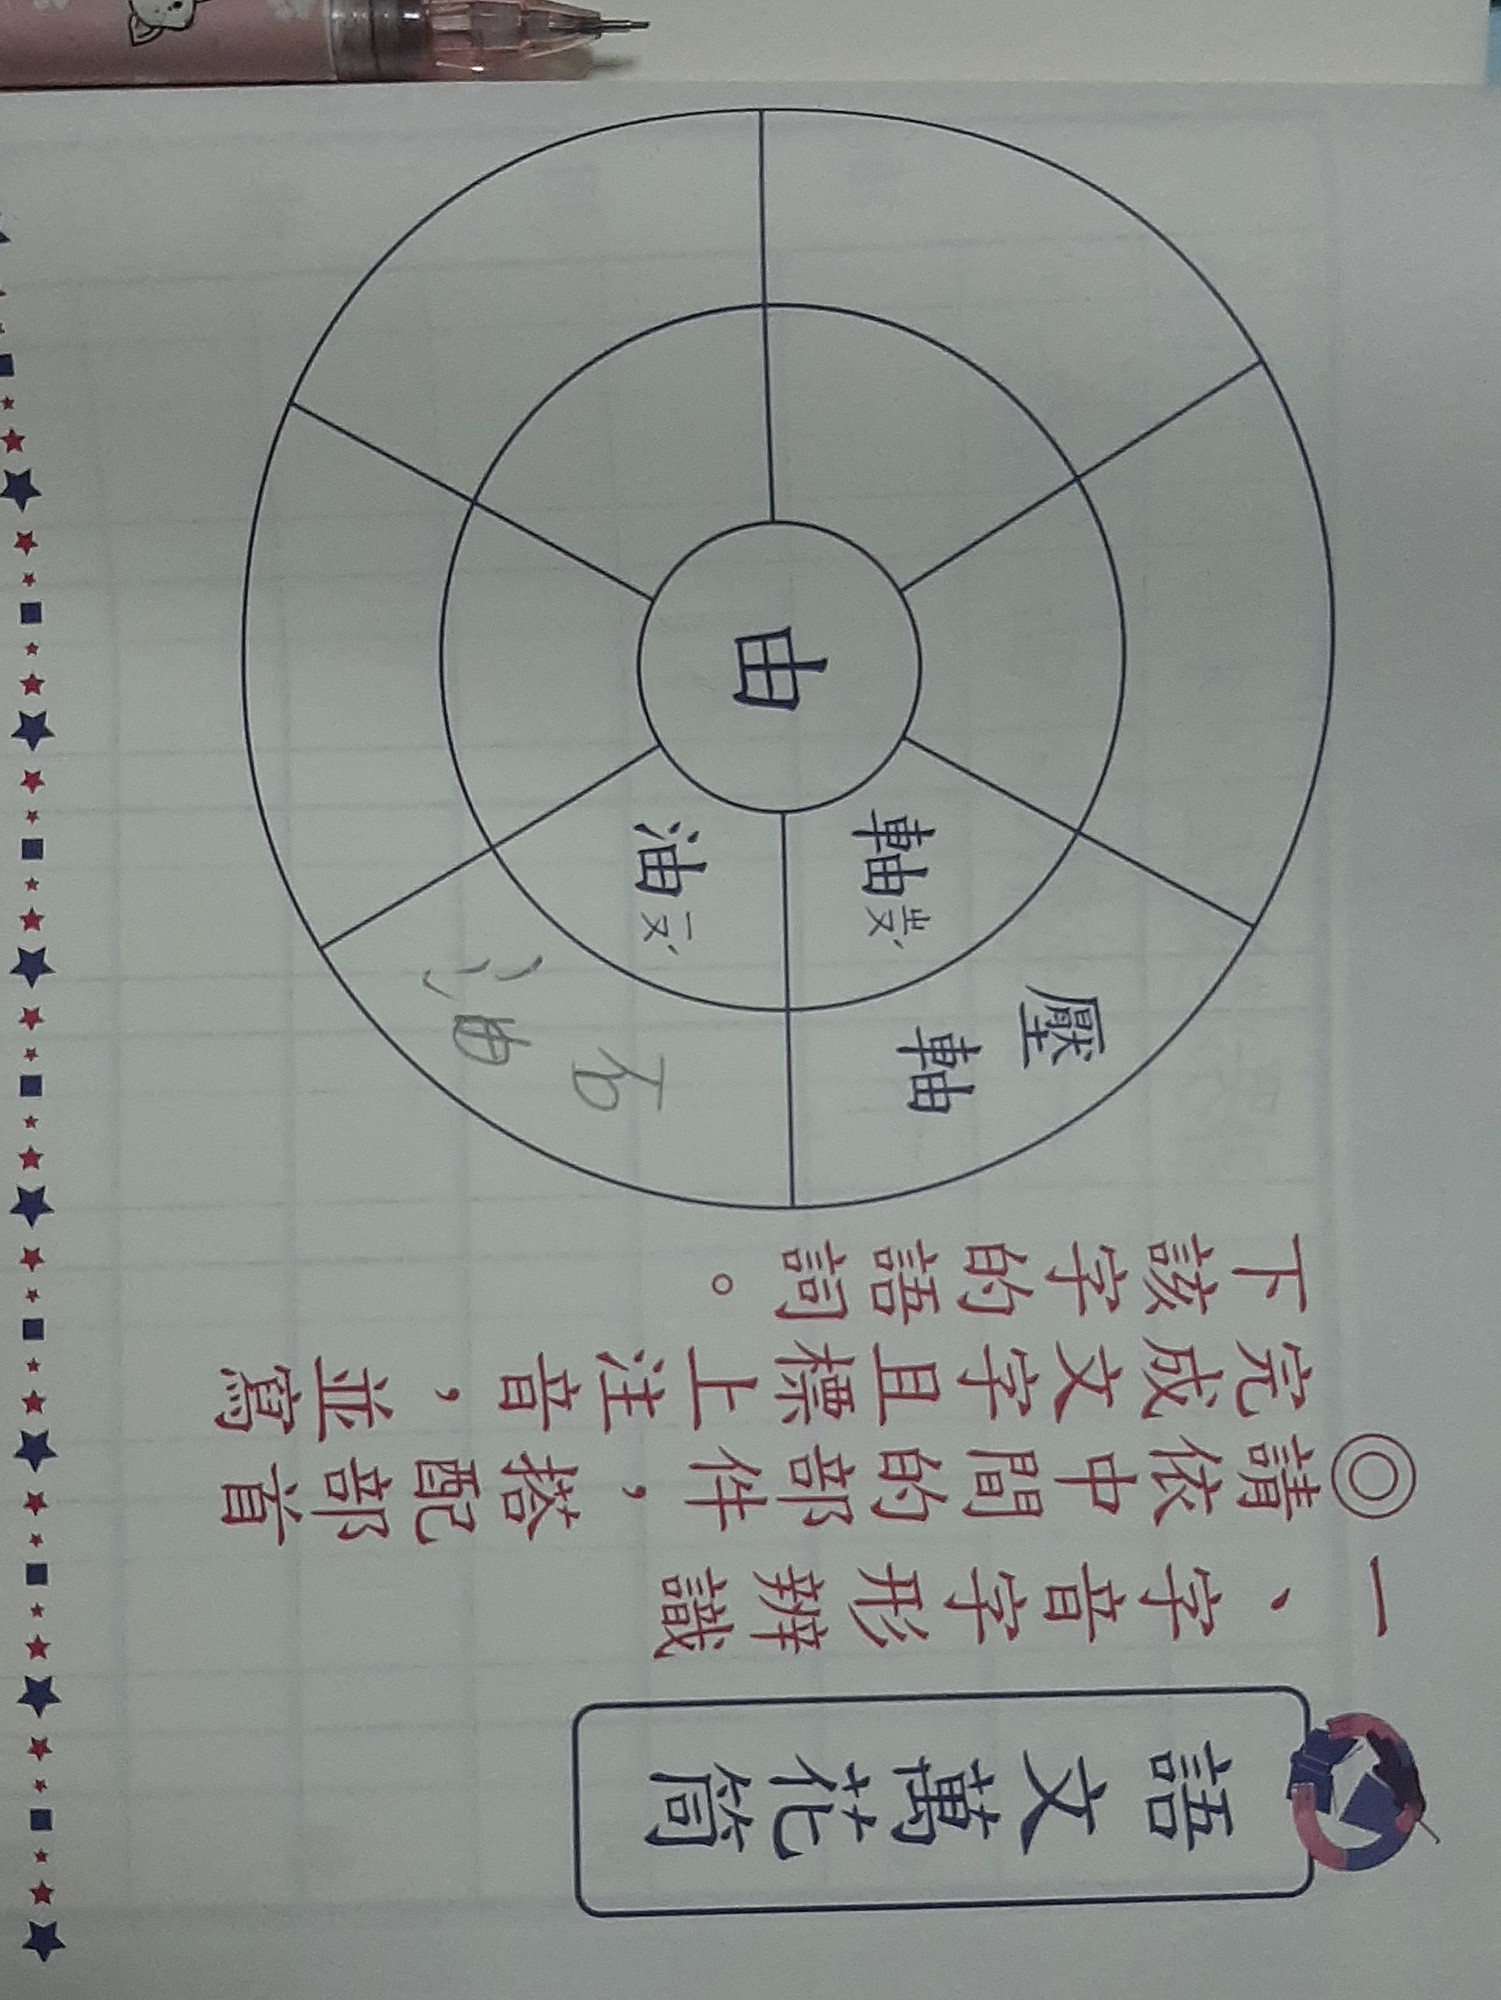 語文萬花筒
一、字音字形辨識
◎請依中間的部件，搭配部首
完成文字且標上注音，並寫
下該字的語詞。
由
軸ㄓㄡˊ
壓軸
油ㄧㄡˊ
石油